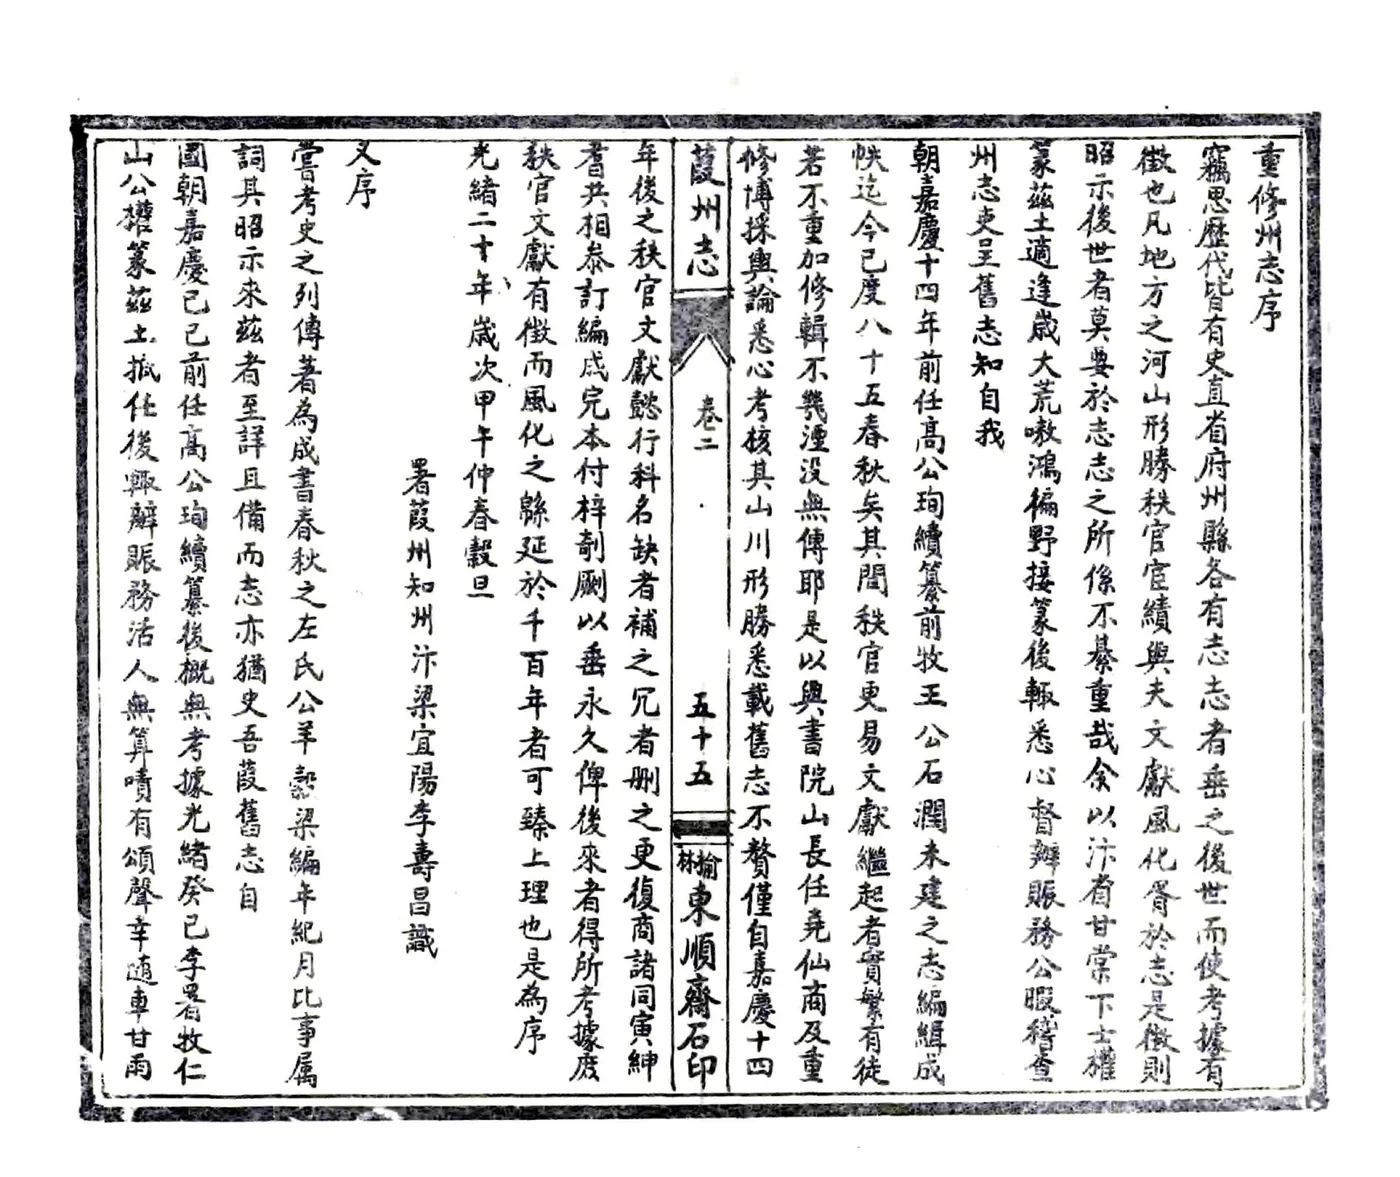 重修州志序
竊思歷代皆有史直省府州縣各有志志者垂之後世而使考據有
徵也凡地方之河山形勝秩官宦績與夫文獻風化胥於志是徵則
昭示後世者莫要於志志之所係不綦重哉余以汴省甘棠下士權
篆茲土適逢歲大荒嗷鴻徧野接篆後輒悉心督辦賑務公暇稽查
州志吏呈舊志知自我
朝嘉慶十四年前任高公珣續纂前牧王公石潤未建之志編緝成
帙迄今已度八十五春秋矣其間秩官更易文獻繼起者實繁有徒
若不重加修輯不幾湮没無傳耶是以與書院山長任堯仙商及重
修博採輿論悉心考核其山川形勝悉載舊志不贅僅自嘉慶十四
葭州志
卷二
五十五
榆林東順齋石印
年後之秩官文獻懿行科名缺者補之冗者删之更復商諸同寅紳
耆共相參訂編成完本付梓剞劂以垂永久俾後來者得所考據庶
秩官文獻有徵而風化之緜延於千百年者可臻上理也是為序
光緒二十年歲次甲午仲春穀旦
署葭州知州汴梁宜陽李壽昌識
又序
嘗考史之列傳著為成書春秋之左氏公羊穀梁編年紀月比事属
詞其昭示來茲者至詳且備而志亦猶史吾葭舊志自
國朝嘉慶己巳前任高公珣續纂後概無考據光緒癸巳李署牧仁
山公權篆茲土抵任後輒辦賑務活人無算嘖有頌聲幸随車甘雨